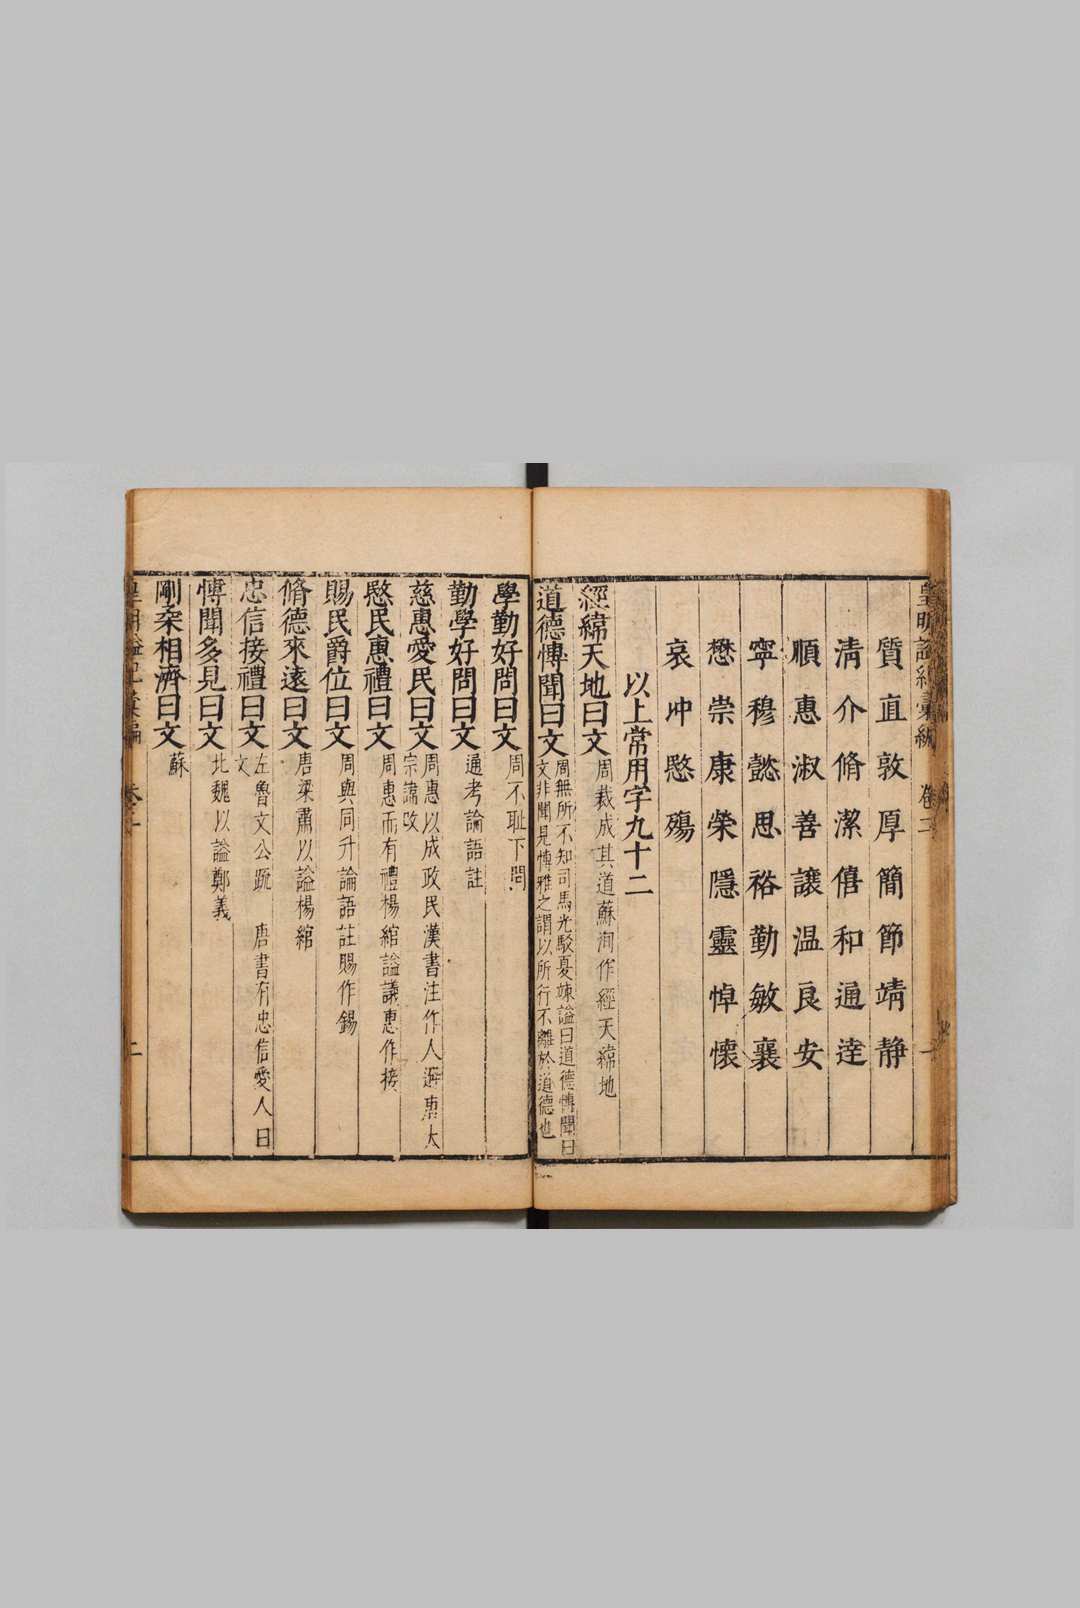 皇明諡紀彙編 卷二
質直敦厚簡節靖静
清介脩潔僖和通逹
順惠淑善讓温良安
寧穆懿思裕勤敏襄
懋崇康榮隱靈悼懷
哀冲愍殤
以上常用字九十二
經緯天地曰文 周裁成其道蘇洵作經天緯地
道德博聞曰文 周無所不知司馬光駁夏竦諡曰道德博聞曰
文非聞見博雅之謂以所行不離於道德也
學勤好問曰文 周不耻下問
勤學好問曰文 通考論語註
慈惠愛民曰文 周惠以成政民漢書注作人避唐太
宗諱改
愍民惠禮曰文 周惠而有禮楊綰諡議惠作接
賜民爵位曰文 周與同升論語註賜作錫
脩德來遠曰文 唐梁肅以諡楊綰
忠信接禮曰文 左魯文公疏 唐書有忠信愛人曰
文
博聞多見曰文 北魏以諡鄭義
剛柔相濟曰文 蘇
皇明諡紀彙編 二